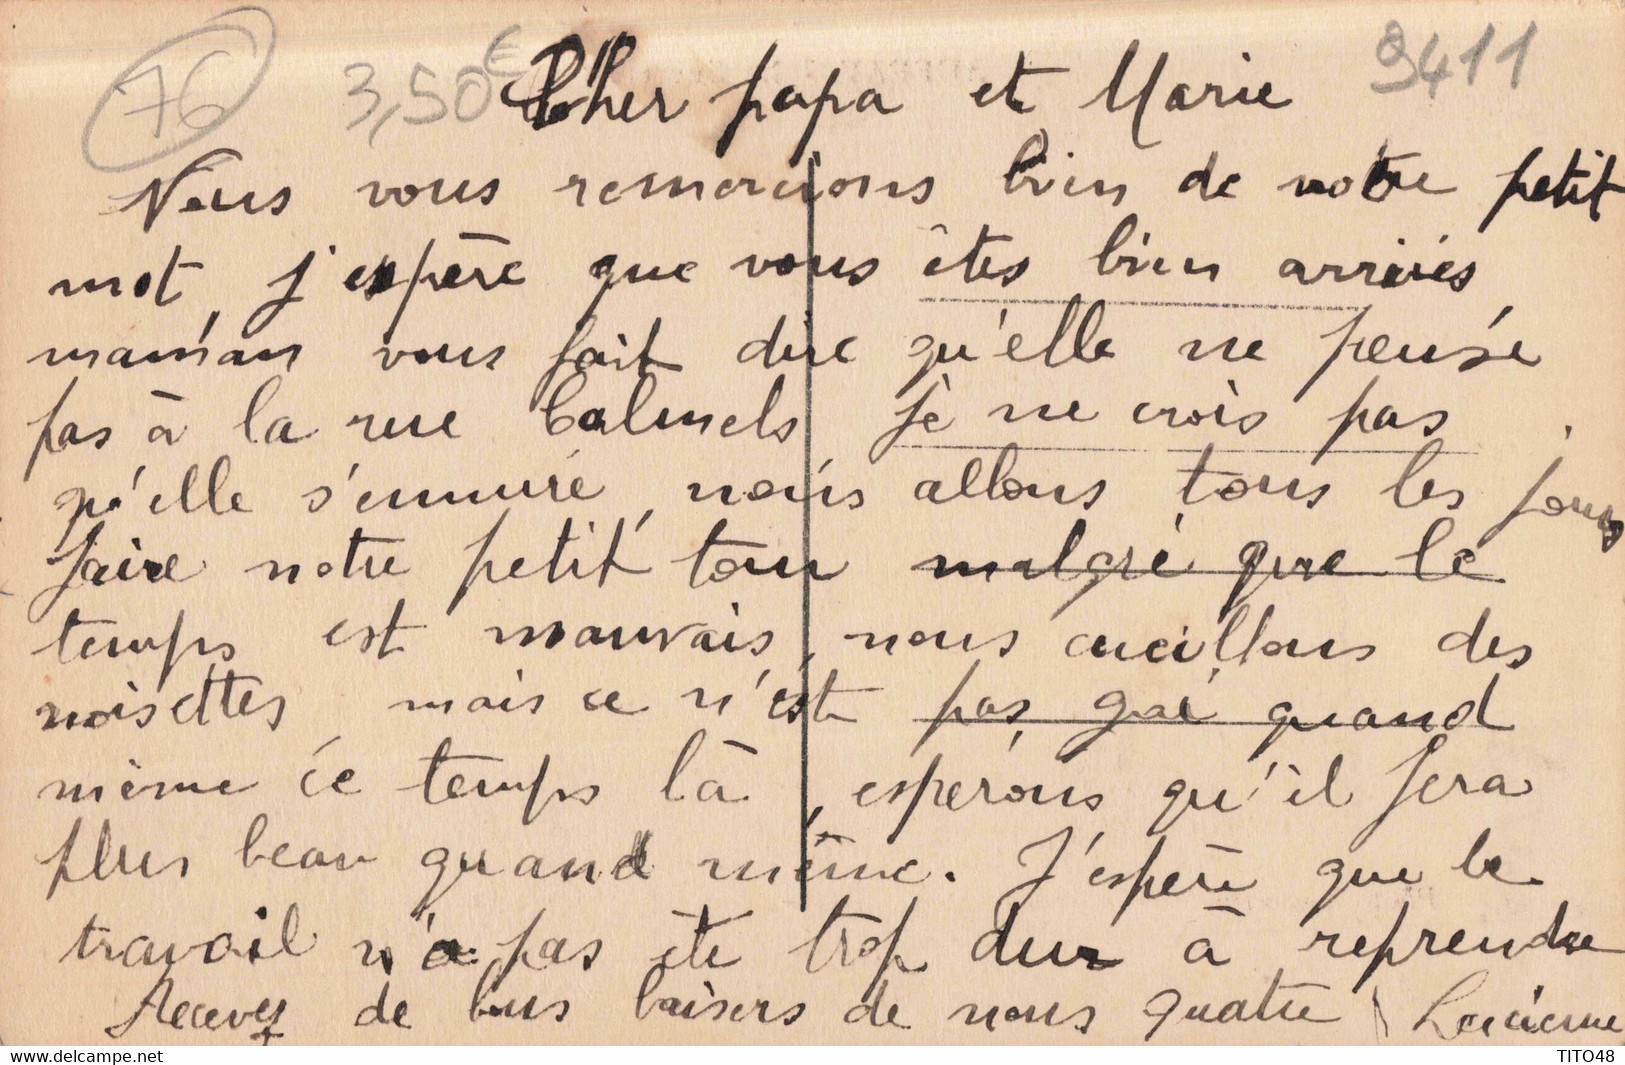 76 3,50€ 9411
Cher papa et Marie
Nous vous remercions bien de votre petit
mot, j'espère que vous êtes bien arrivés
maman vous fait dire qu'elle ne pense
pas à la rue Calmels je ne crois pas
qu'elle s'ennuie, nous allons tous les jours
faire notre petit tour malgré que le
temps est mauvais, nous cueillons des
noisettes, mais ce n'est pas gai quand
même ce temps là, espérons qu'il fera
plus beau quand même. J'espère que le
travail n'a pas été trop dur à reprendre
Recevez de bons baisers de nous quatre Lucienne
www.delcampe.net
TITO48